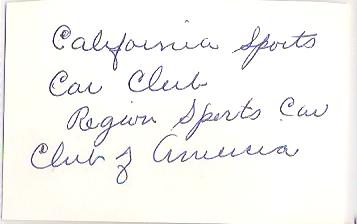 California Sports
Car Club
Region Sports Car
Club of America